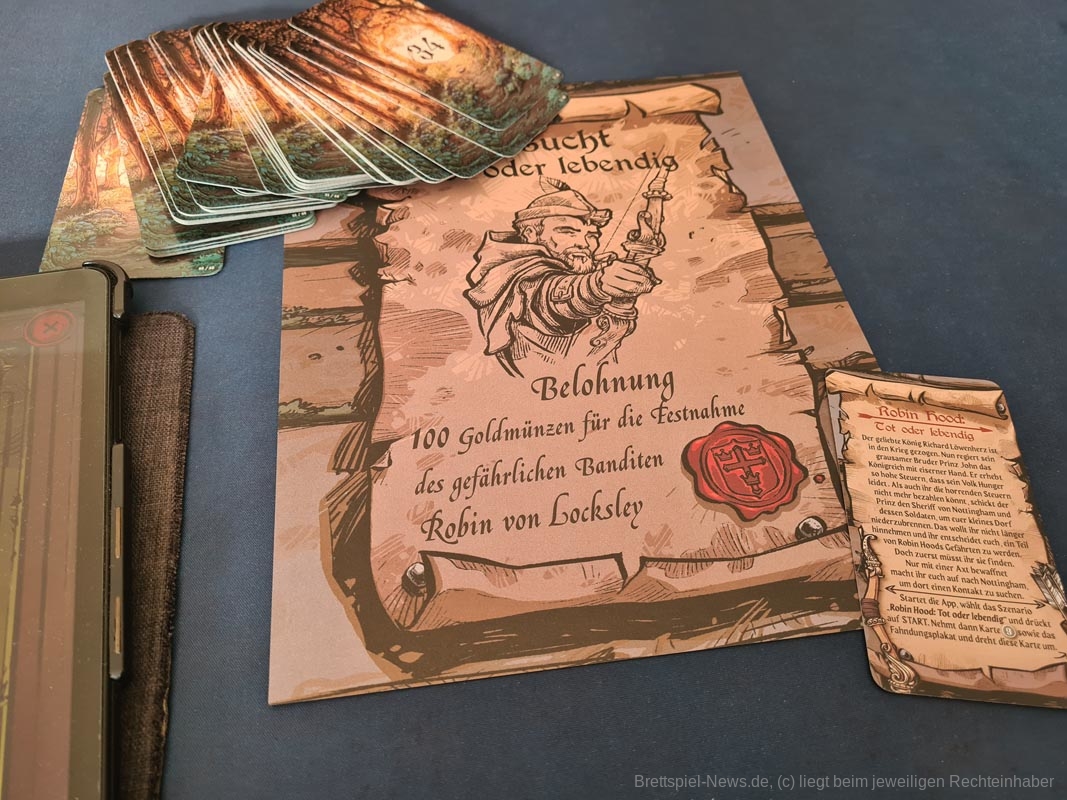 34
oder lebendig
Belohnung
100 Goldmünzen für die Festnahme
des gefährlichen Banditen
Robin von Locksley
Robin Hood:
Tot oder lebendig
Der geliebte König Richard Löwenherz ist
in den Krieg gezogen. Nun regiert sein
grausamer Bruder Prinz John das
Königreich mit eiserner Hand. Er erhebt
so hohe Steuern, dass sein Volk Hunger
leidet. Als auch ihr die horrenden Steuern
nicht mehr bezahlen könnt, schickt der
Prinz den Sheriff von Nottingham und
dessen Soldaten, um euer kleines Dorf
niederzubrennen. Das wollt ihr nicht länger
hinnehmen und ihr entscheidet euch, ein Teil
von Robin Hoods Gefährten zu werden.
Doch zuerst müsst ihr sie finden.
Nur mit einer Axt bewaffnet
macht ihr euch auf nach Nottingham,
um dort einen Kontakt zu suchen.
Startet die App, wählt das Szenario
„Robin Hood: Tot oder lebendig“ und drückt
auf START. Nehmt dann Karte sowie das
Fahndungsplakat und dreht diese Karte um.
Brettspiel-News.de, (c) liegt beim jeweiligen Rechteinhaber